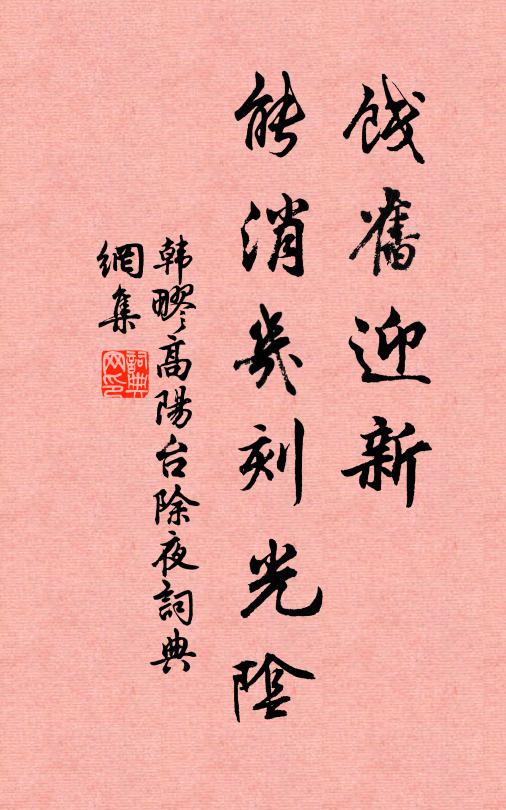 餞舊迎新
能消幾刻光陰
韩疁高陽台除夜詞典
網集
詞典网印